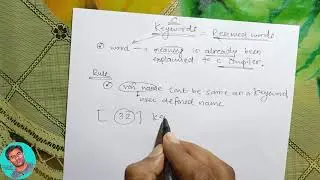 C
Keywords = Reserved words
word — meaning is already been
explained to c compiler.
Rule
var name can't be same as a keyword
user defined name
[ 32 ] Ke